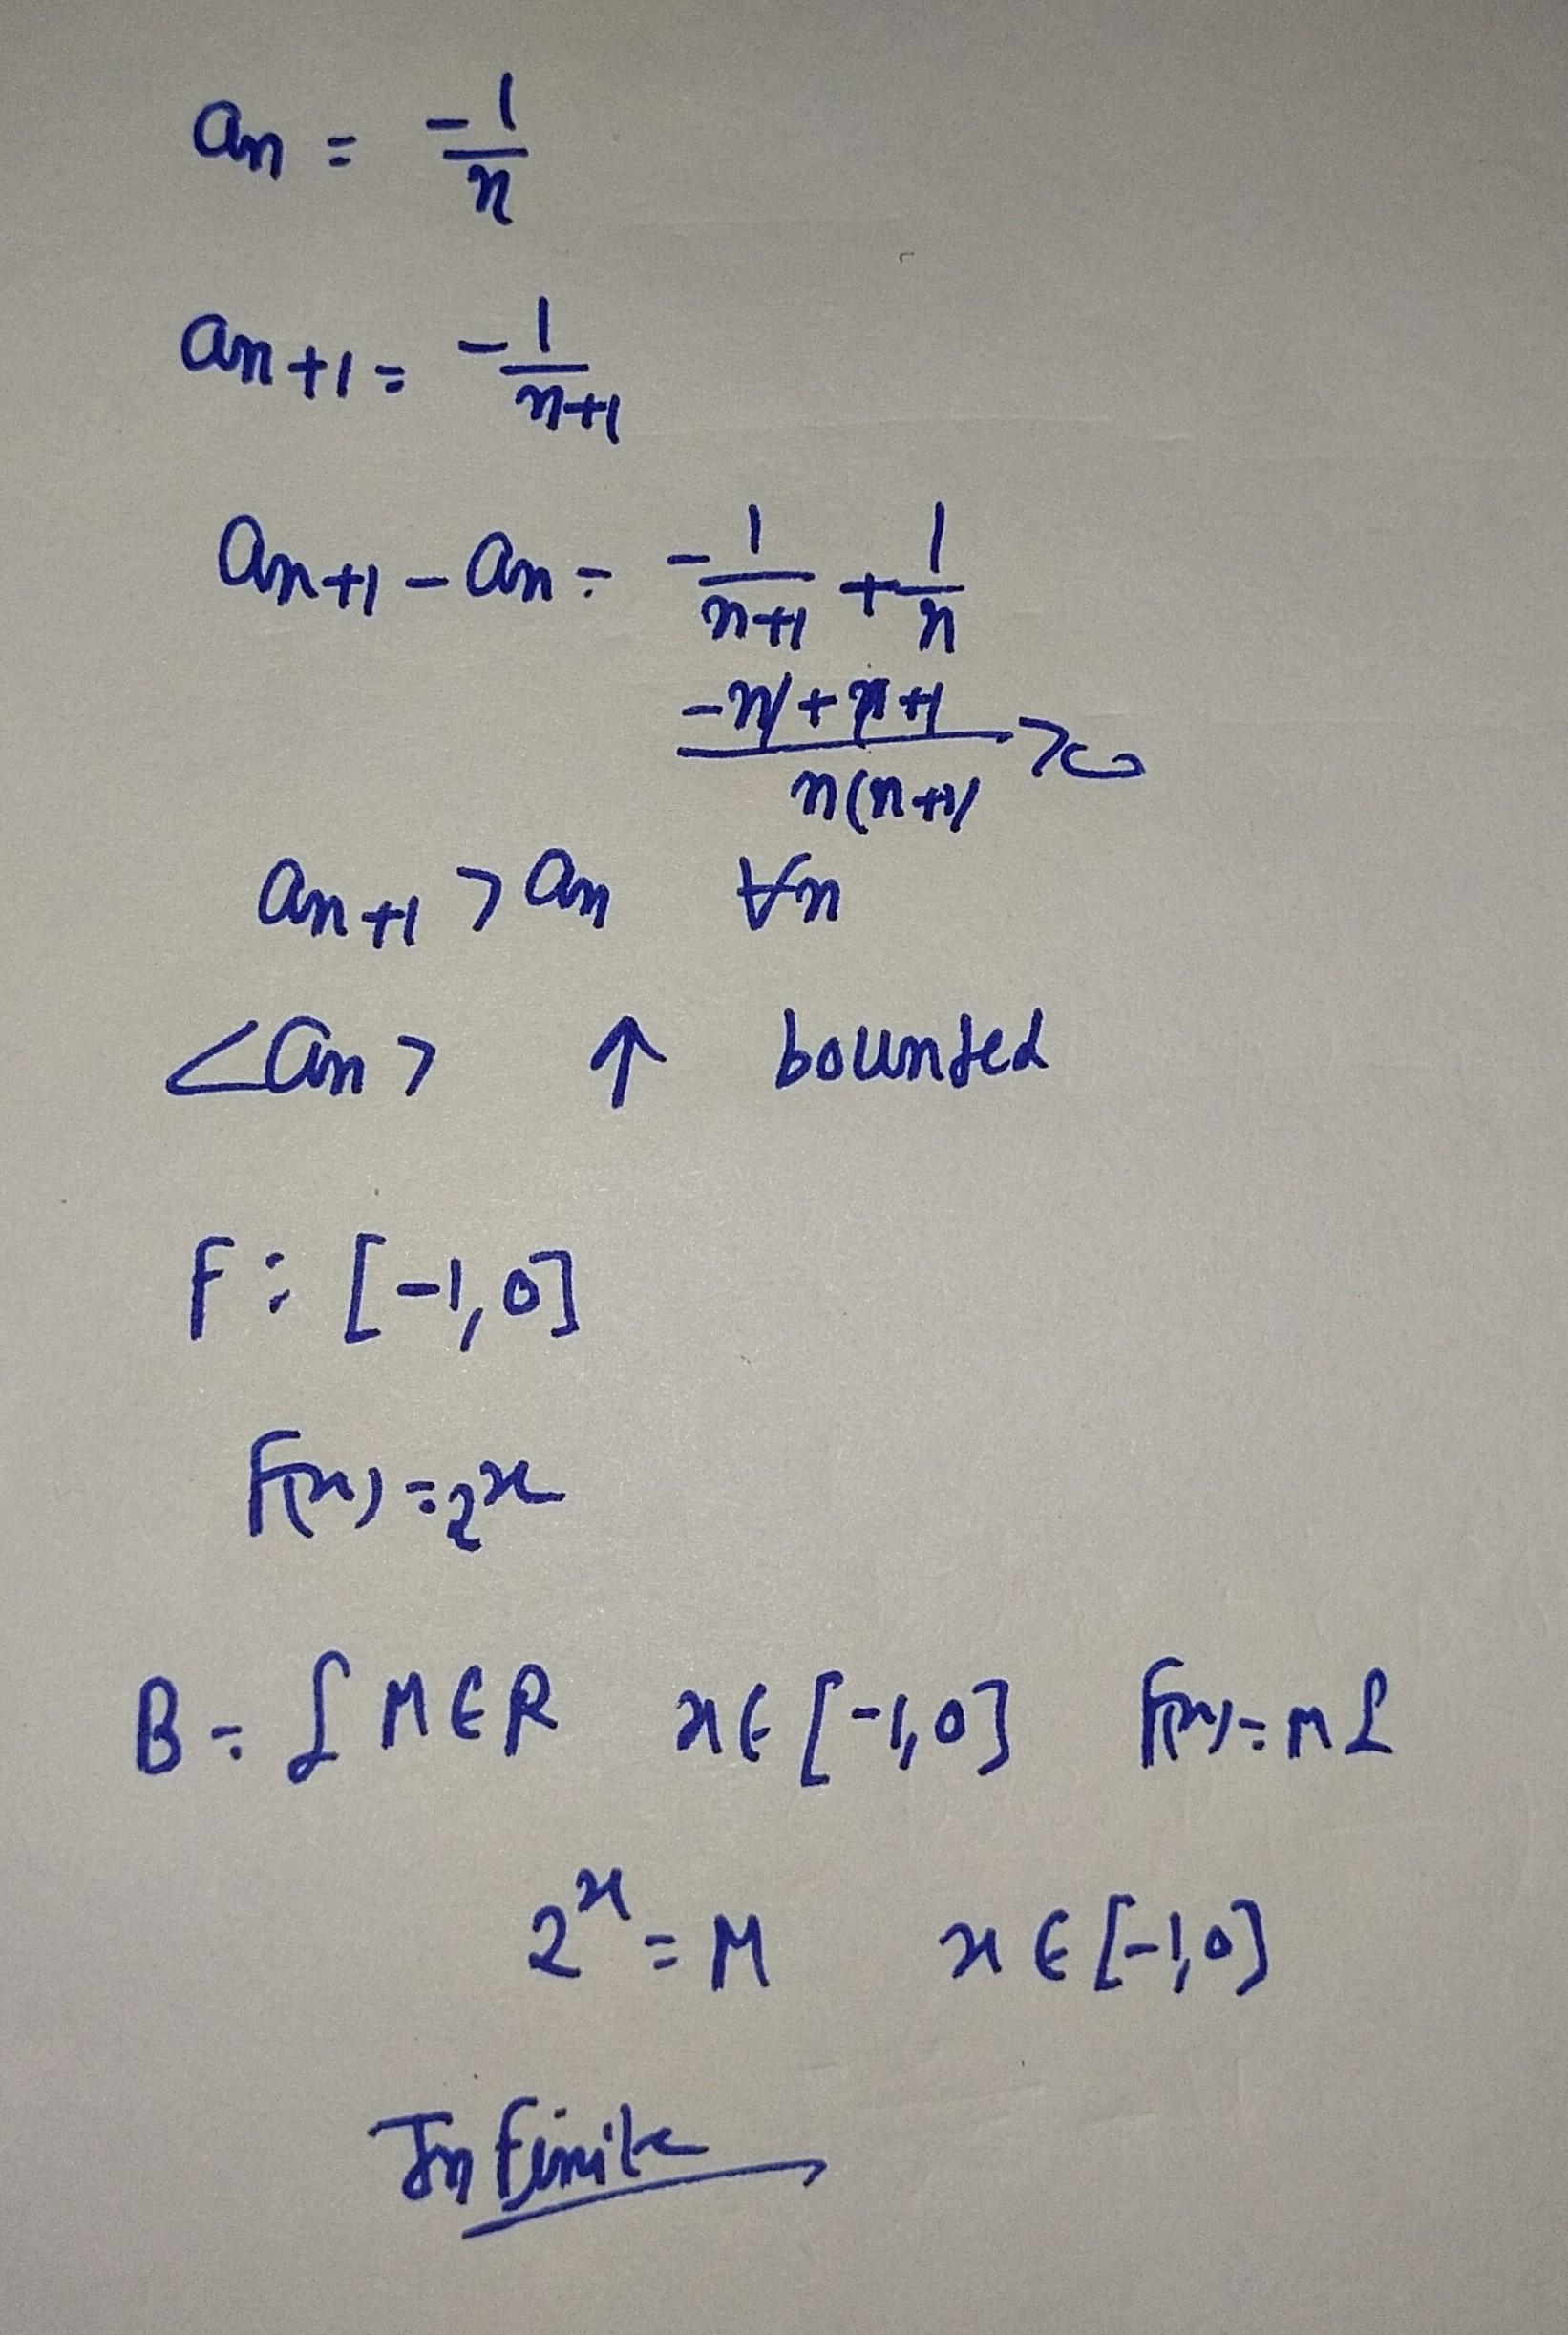 an = -1/n
an+1 = -1/n+1
an+1 - an = -1/n+1 + 1/n
-n+n+1/n(n+1) >0
an+1 > an ∀n
<an> ↑ bounded
f: [-1,0]
f(x) = 2^x
B = { M∈R x∈[-1,0] f(x)=M }
2^x = M x∈[-1,0]
Infinite